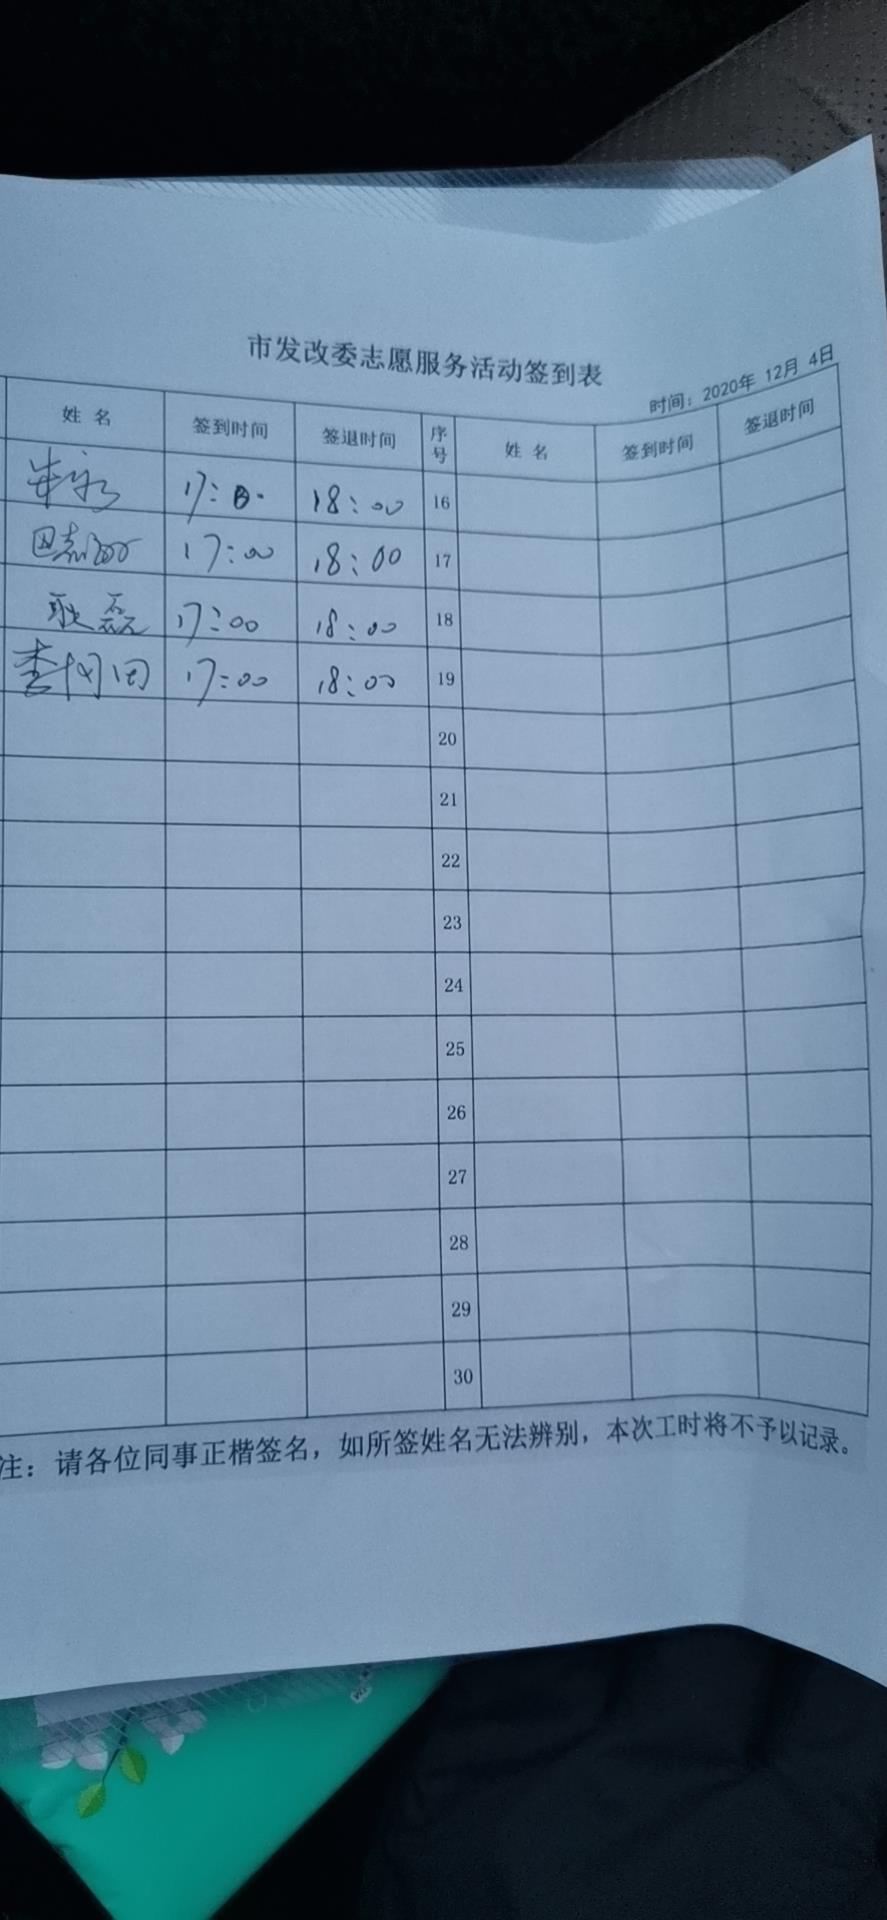 市发改委志愿服务活动签到表
时间：2020年 12月 4日
姓 名 签到时间 签退时间 序号 姓 名 签到时间 签退时间
18:00 16
17:00 18:00 17
耿磊 17:00 18:00 18
17:00 18:00 19
20
21
22
23
24
25
26
27
28
29
30
注：请各位同事正楷签名，如所签姓名无法辨别，本次工时将不予以记录。